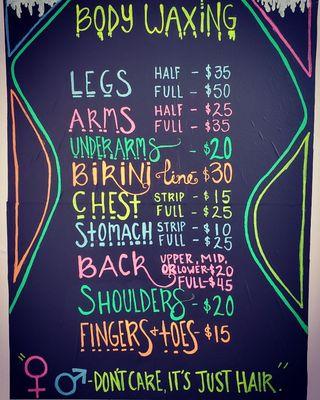 BODY WAXING
LEGS HALF - $35
FULL - $50
ARMS HALF - $25
FULL - $35
UNDERARMS - $20
BIKINI line $30
CHEST STRIP - $15
FULL - $25
STOMACH STRIP - $10
FULL - $25
BACK UPPER, MID,
OR LOWER-$20
FULL-$45
SHOULDERS - $20
FINGERS & TOES $15
"♀ ♂-DON'T CARE, IT'S JUST HAIR."